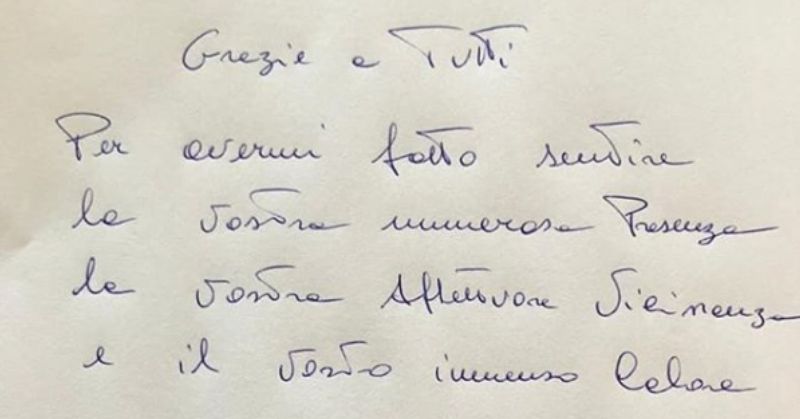 Grazie a Tutti
Per avermi fatto sentire
la vostra numerosa Presenza
la vostra Affettuosa Vicinanza
e il vostro immenso Calore